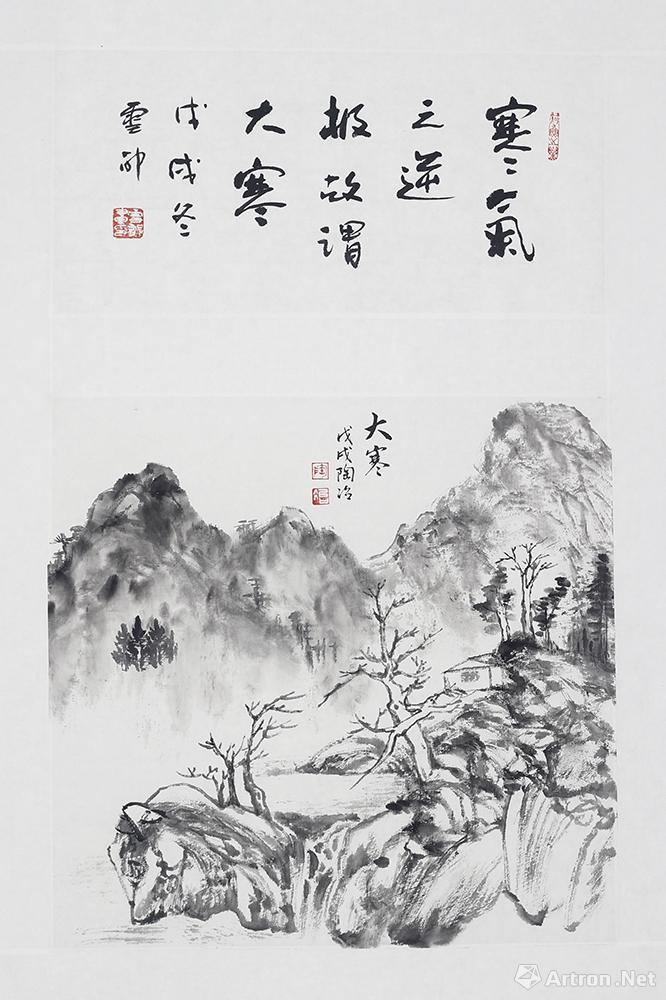 寒氣
之逆
极故謂
大寒
戊戌冬
雲
大寒
戊戌陶冶
Artron.Net